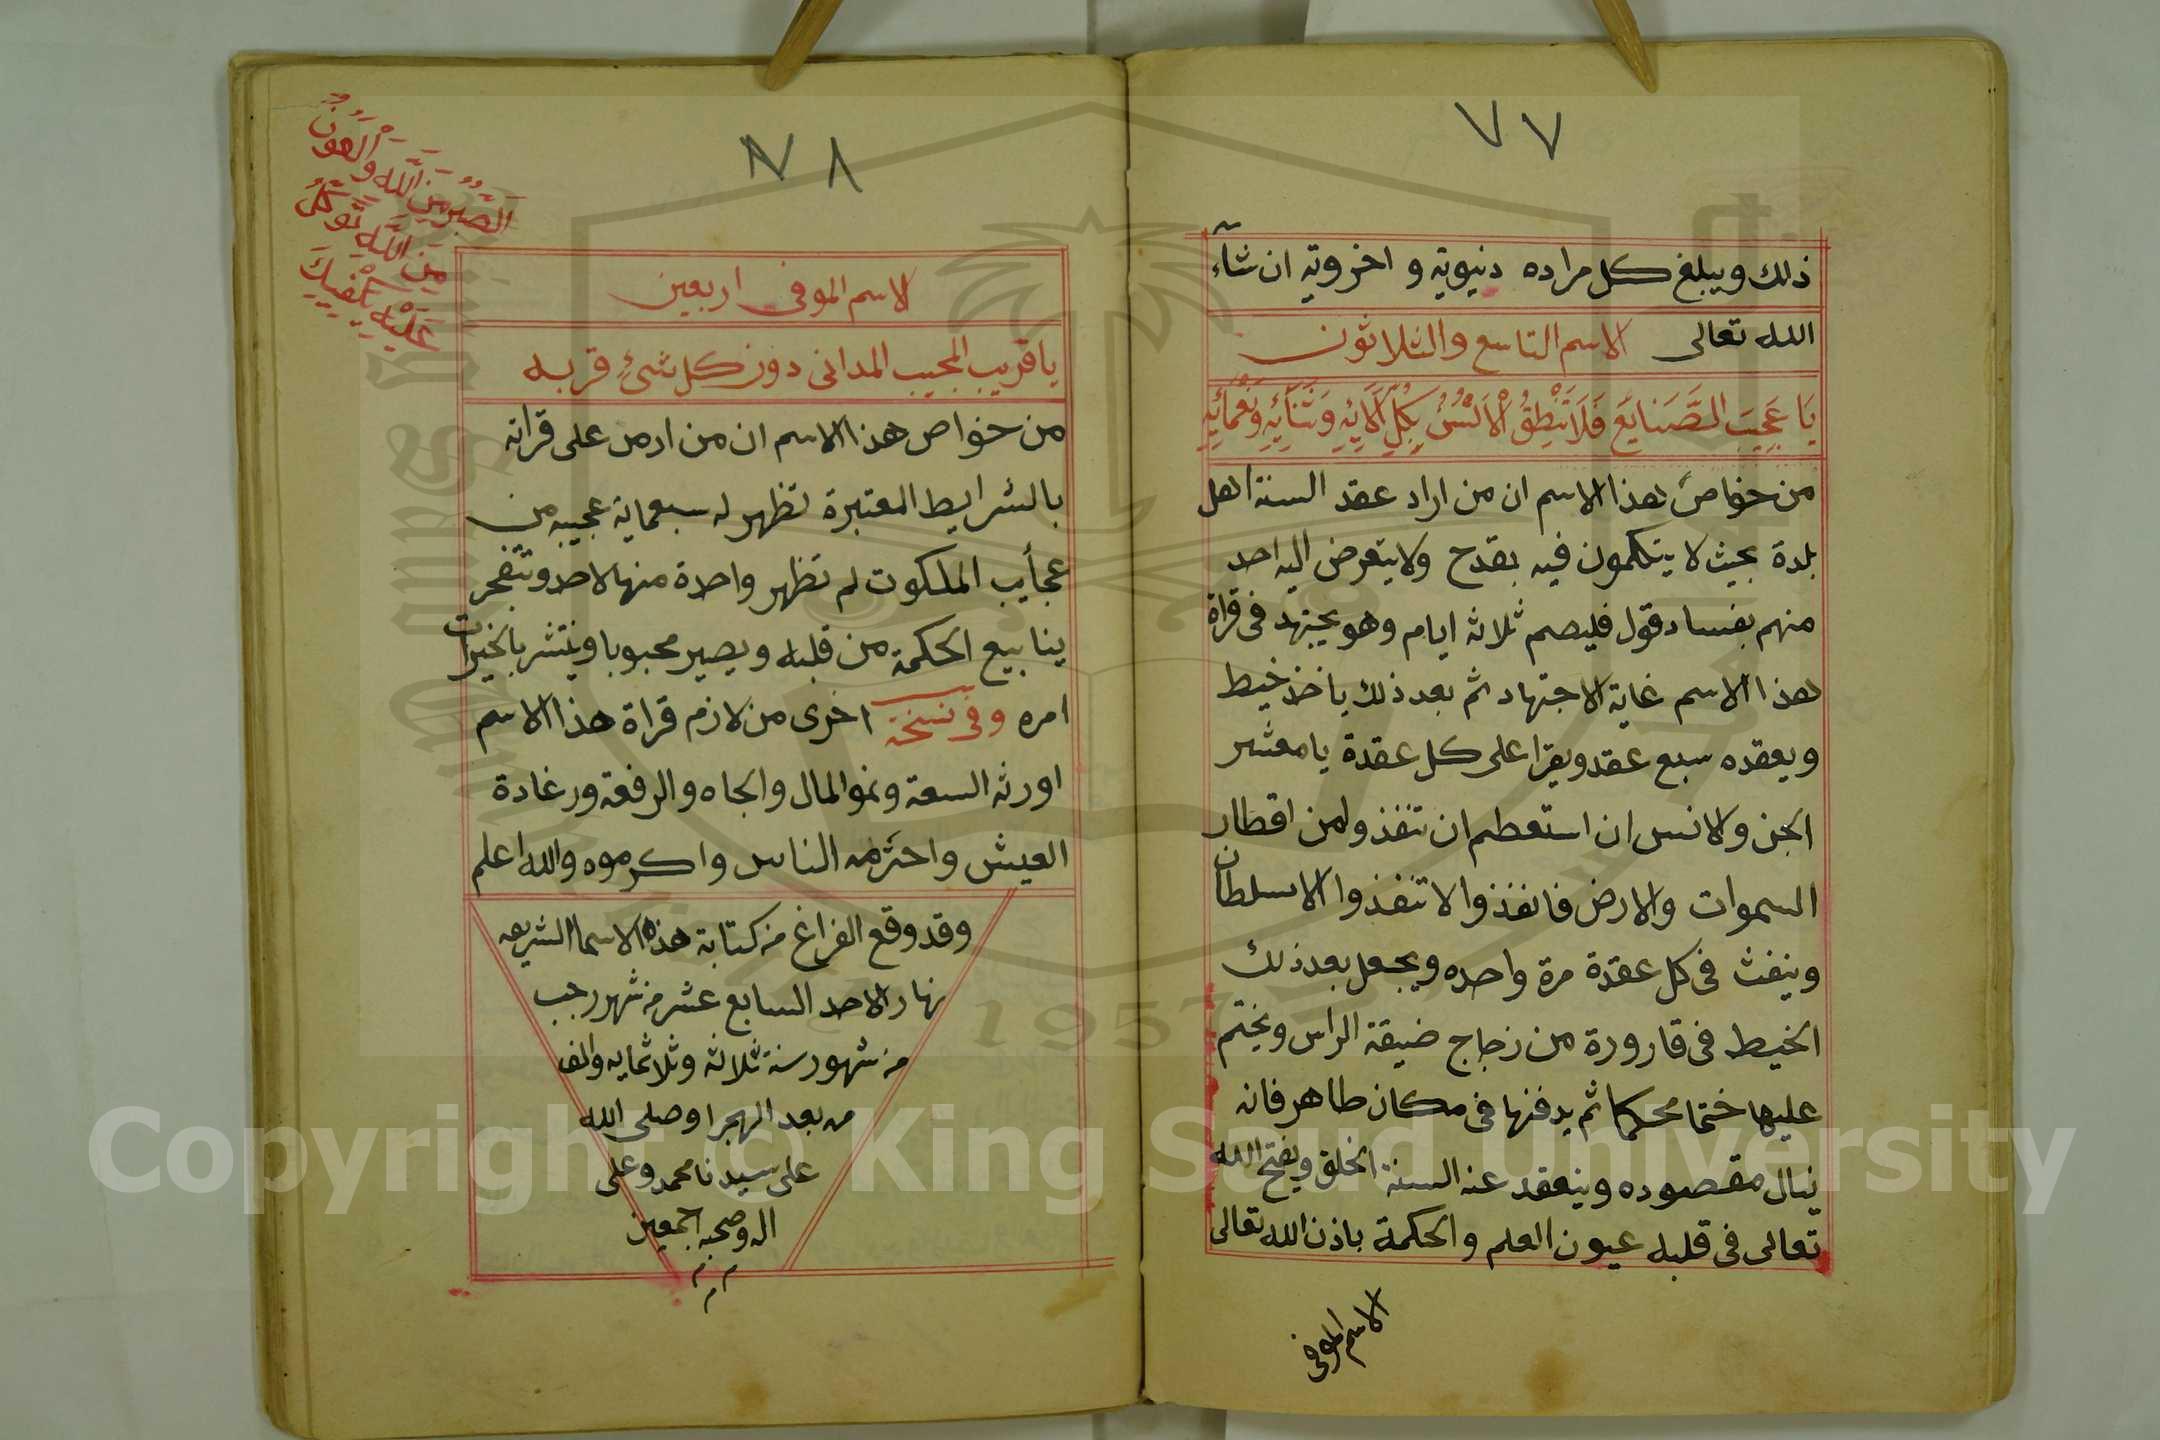 ٧٧
ذلك ويبلغ كل مراده دنيوية و اخروية ان شآء
الله تعالى الاسم التاسع والثلاثون
يَا عَجِيبَ الصَّنَايَعِ فَلَا تَنْطِقُ الْاَلْسُنُ بِكُلِّ آلَايِهِ وَثَنَآئِهِ وَنَعْمَآئِهِ
من خواص هذا الاسم ان من اراد عقد السنة اهل
بلدة بحيث لا يتكلمون فيه بقدح ولا يتعرض اليه احد
منهم بفساد قول فليصم ثلاثه ايام وهو يجتهد فى قراة
هذا الاسم غاية الاجتهاد ثم بعد ذلك ياخذ خيط
ويعقده سبع عقد ويقرا على كل عقدة يا معشر
الجن والانس ان استعطم ان تنفذو لمن اقطار
السموات والارض فانفذوا لا تنفذوا الا سلطان
وينفث فى كل عقدة مرة واحده ويجعل بعد ذلك
الخيط فى قارورة من زجاج ضيقة الراس ويختم
عليها ختما محكما ثم يدفنها فى مكان طاهر فانه
ينال مقصوده وينعقد عنه السنة الخلق ويفتح الله
تعالى فى قلبه عيون العلم والحكمة باذن الله تعالى
الاسم الموفى
٧٨
الصَّبْرُ مِنَ اللَّهِ وَالْعَوْنُ
مِنَ اللَّهِ تَوَكَّلْ
عَلَيْهِ يَكْفِيكَ
الاسم الموفى اربعين
يا قريب المجيب المدانى دون كل شئ قربه
من خواص هذا الاسم ان من ادمن على قراته
بالشرايط المعتبرة تظهر له سبعماية عجيبه من
عجأيب الملكوت لم تظهر واحدة منها لاحد وتتفجر
ينابيع الحكمة من قلبه ويصير محبوبا وينتشر بالخيرات
امره وفى نسخة اخرى من لازم قراة هذا الاسم
اورثه السعة ونمو المال والجاه والرفعة ورغادة
العيش واحترمه الناس واكرموه والله اعلم
وقد وقع الفراغ من كتابة هذه الاسما الشريعه
نهار الاحد السابع عشر من شهر رجب
من شهور سنة ثلاثه وثلاثمايه والف
من بعد الهجرا وصلى الله
على سيدنا محمد وعلى
اله وصحبه اجمعين
م م م
1957
Copyright © King Saud University